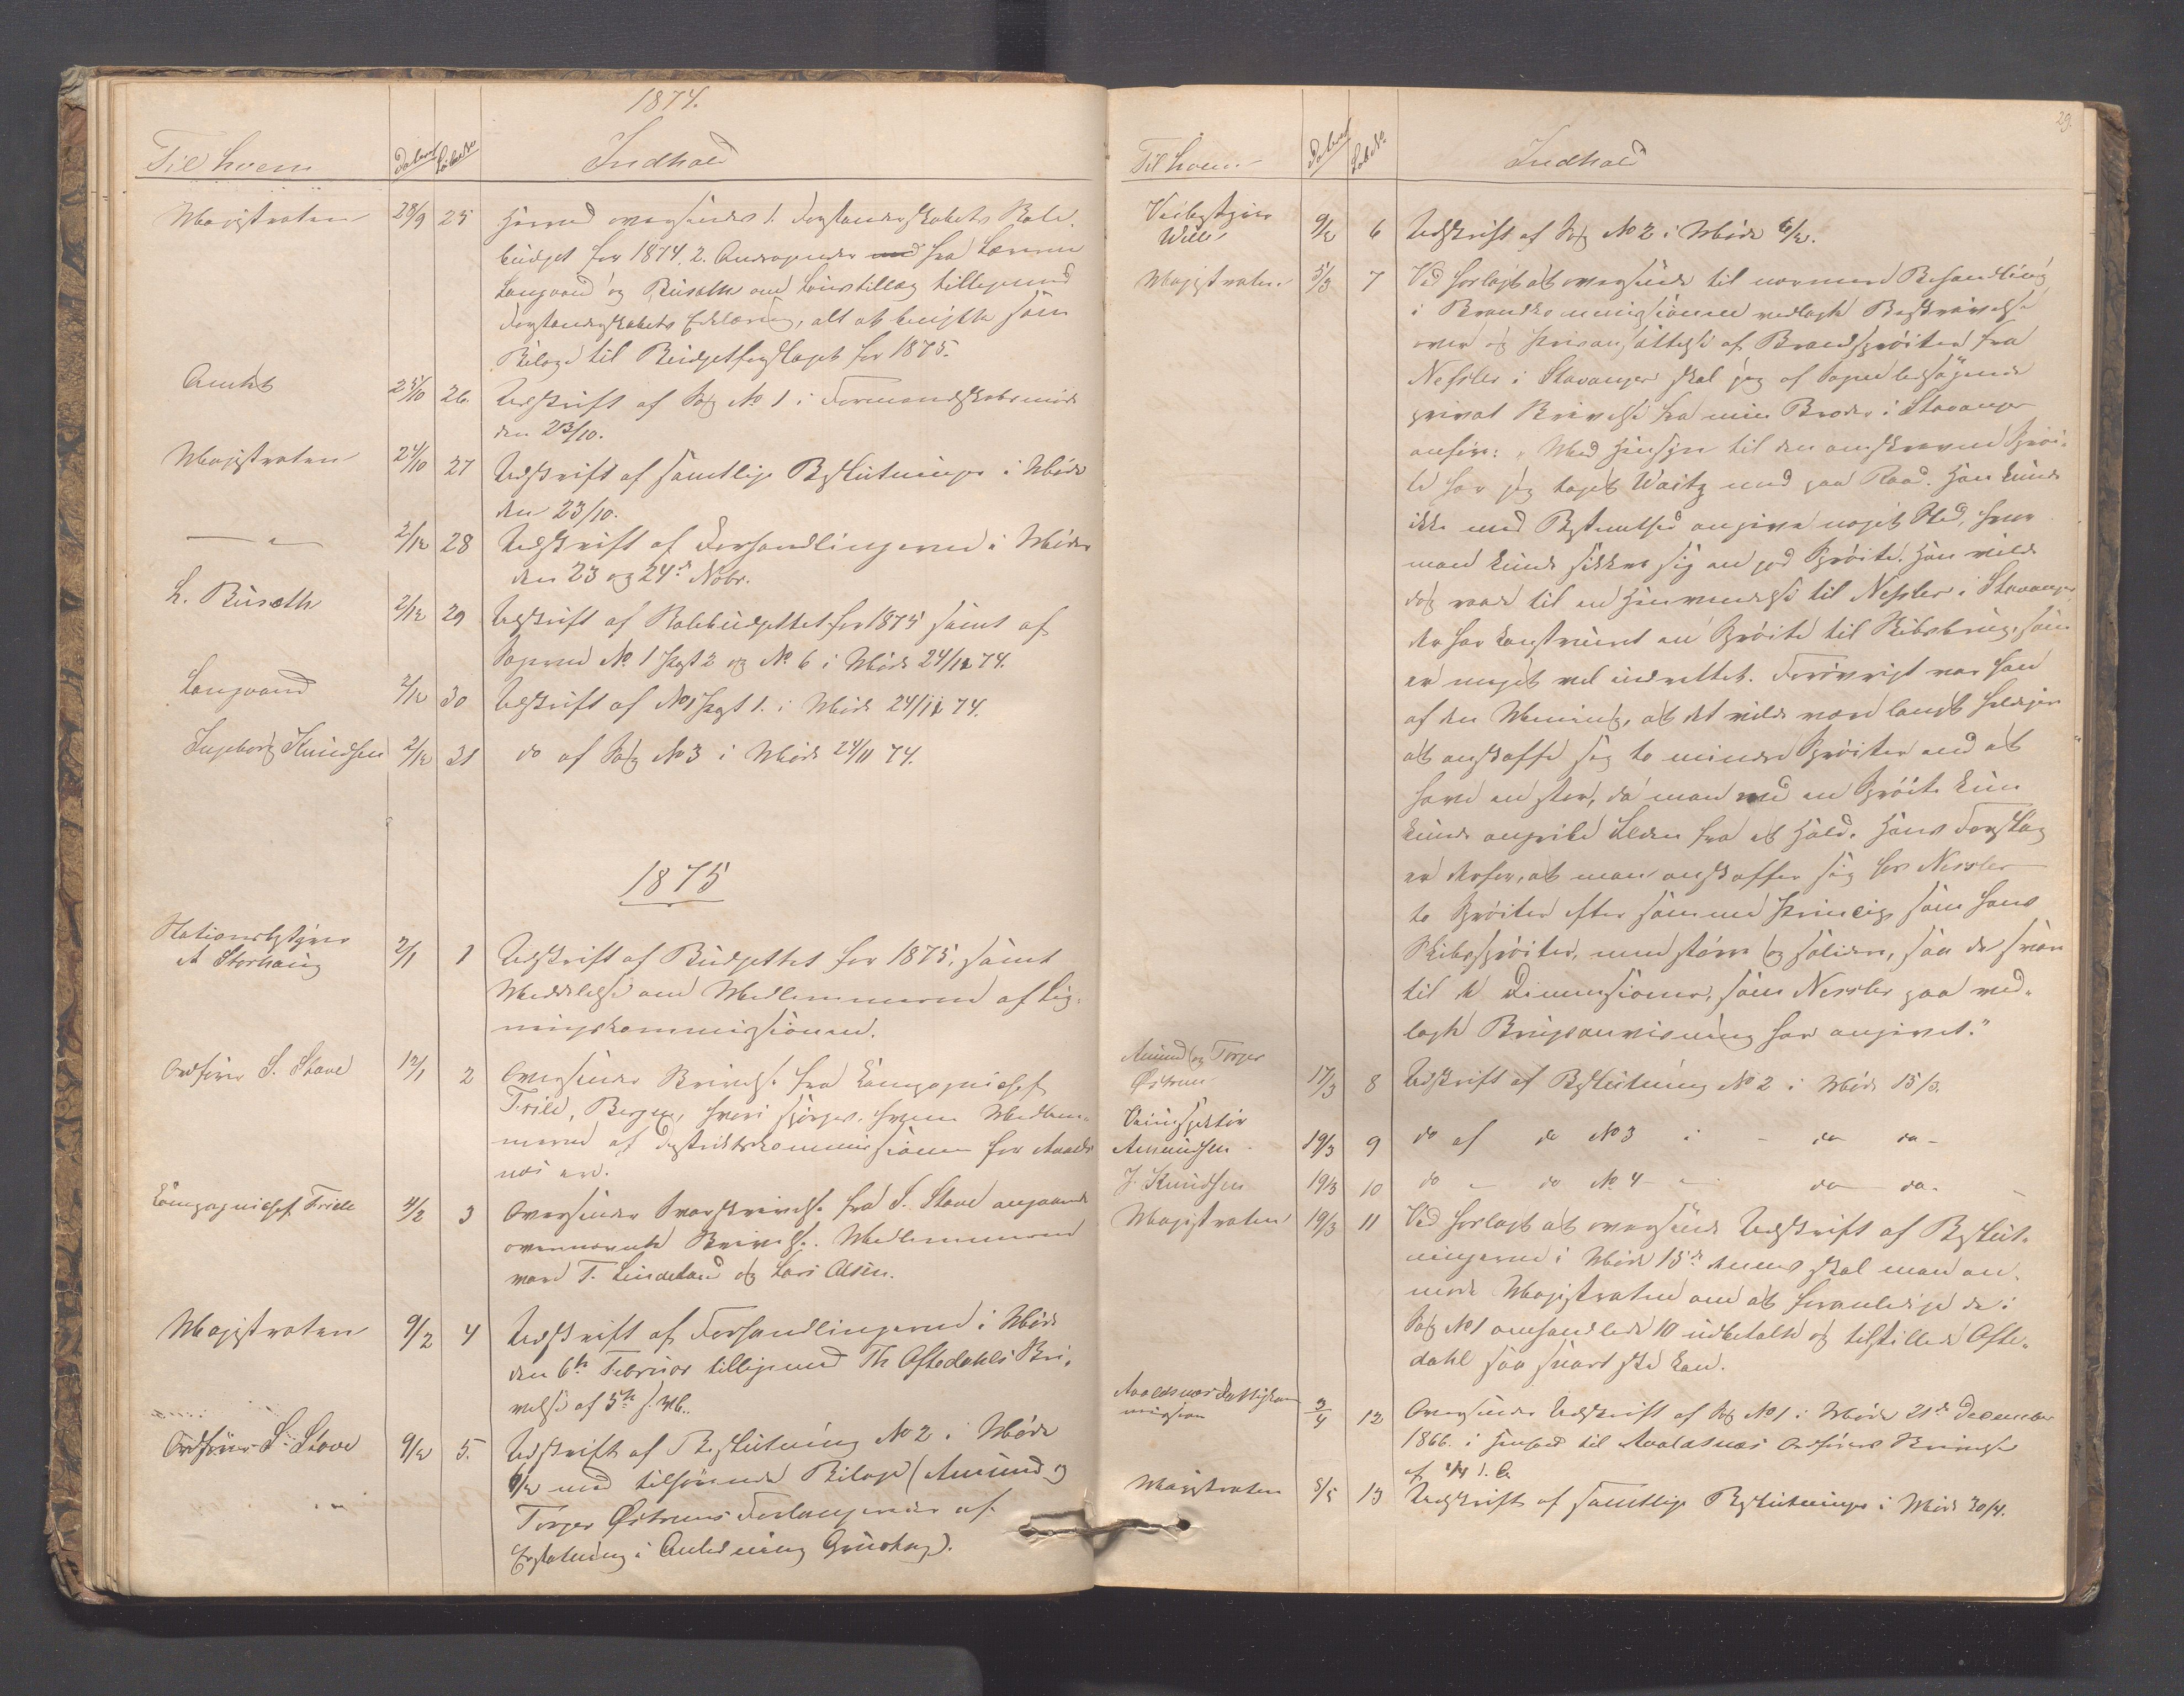 1874.
Til hvem Datum Løbe No Indhold
Magistraten 28/9 25 Herved oversendes 1. Forstanderskabets Skole-
budget for 1874, 2. Andragender fra Lærerne
Langaand og Buseth om Lønstillæg tilligemed
Forstanderskabets Erklæring, alt at benytte som
Bilage til Budgetforslaget for 1875.
Amtet 25/10 26. Udskrift af Sag No 1 i Formandskabsmøde
den 23/10.
Magistraten 24/10 27 Udskrift af samtlige Beslutninger i Møde
den 23/10.
— " — 2/12 28 Udskrift af Forhandlingerne i Møder
den 23 og 24de Nobr.
L. Buseth 2/12 29 Udskrift af Skolebudgettet for 1875 samt af
Sagerne No 1 Post 2 og No 6 i Møde 24/11 74.
Langaand 2/12 30 Udskrift af No 1 Post 1. i Møde 24/11 74.
Ingeborg Knudsen 2/12 31 do af Sag No 3 i Møde 24/11 74.
1875
Stationsbestyrer
A Storhaug 2/1 1 Udskrift af Budgettet for 1875, samt
Meddelelse om Medlemmerne af Lig-
ningskommissionen.
Ordfører S. Stave 12/1 2 Oversender Skrivelse fra Kompagnichef
Friele, Bergen, hvori spørges, hvem Medlem-
merne af Distriktskommissionen for Avalds-
næs er.
Kompagnichef Friele 4/2 3 Oversender Svarskrivelse fra S. Stave angaaende
ovennævnte Skrivelse. Medlemmerne
vare T. Lindeland og Lars Olsen.
Magistraten 9/2 4 Udskrift af Forhandlingerne i Møde
den 6te Februar tilligemed Th. Oftedahls Skri-
velse af 5te s. M.
Ordfører S. Stave 9/2 5. Udskrift af Beslutning No 2 i Møde
6/2 med tilhørende Bilage (Amund og
Torger Østrems Forlangende af
Erstatning i Anledning Grustag).
29.
Til hvem Datum Løbe No Indhold
Veibestyrer
Wille 9/2 6 Udskrift af Sag No 2 i Møde 6/2.
Magistraten 5/3 7 Ved forlagt at oversende til nærmere Behandling
i Brandkommissionen vedlagte Beskrivelse
over og Prisansættelse af Brandsprøiter fra
Nessler i Stavanger skal jeg af Sagen ledsagende
privat Skrivelse fra min Broder i Stavanger
anføre: "Med Hensyn til den omskrevne Sprøi-
te har jeg taget Waitz med paa Raad. Han kunde
ikke med Bestemthed angive noget Sted, hvor
man kunde sikker sig en god Sprøite. Han vilde
dog raade til en Henvendelse til Nessler i Stavanger
der har konstrueret en Sprøite til Skibsbrug, som
er meget vel indrettet. Forøvrigt var han
af den Mening, at det vilde være langt heldigere
at anskaffe sig to mindre Sprøiter end at
have en stor, da man med en Sprøite kun
kunde angribe Ilden fra et Hold. Hans Forslag
er derfor, at man anskaffer sig hos Nessler
to Sprøiter efter samme Princip som hans
Skibssprøiter, men større og solidere, saa de svare
til de Dimensioner, som Nessler paa ved-
lagte Brugsanvisning har angivet."
Amund og Torger
Østrem 17/3 8 Udskrift af Beslutning No 2 i Møde 15/3.
Veiinspektør
Amundsen 19/3 9 do af do No 3 i — do do —
J. Knudsen 19/3 10 do — do No 4 — do do. —
Magistraten 19/3 11 Ved forlagt at oversende Udskrift af Beslut-
ningerne i Møde 15de dennes skal man an-
mode Magistraten om at foranledige de i
Sag No 1 omhandlede 10 udbetalte og tilstillede Ofte-
dahl saa snart ske kan.
Avaldsnæs Fattigkom-
mission 3/4 12 Oversender Udskrift af Sag No 1 i Møde 21de December
1866. i Henhold til Avaldsnæs Ordførers Skrivelse
af
Magistraten 8/5 13 Udskrift af samtlige Beslutninger i Møde 30/4.